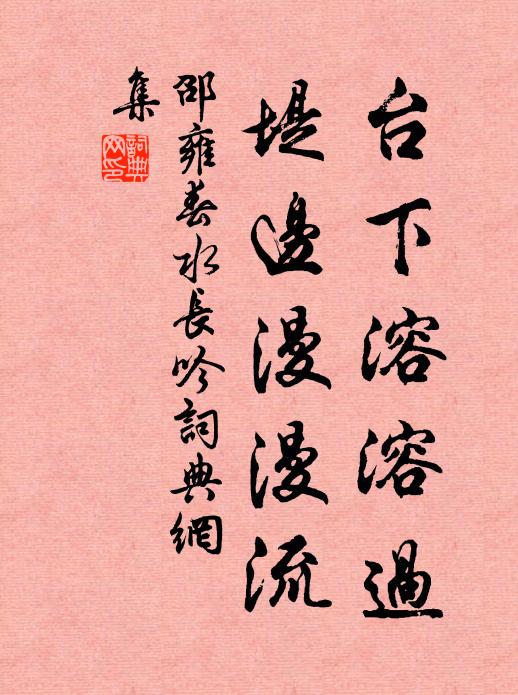 台下溶溶過
堤邊漫漫流
邵雍春水長吟詞典網
集
詞典網印